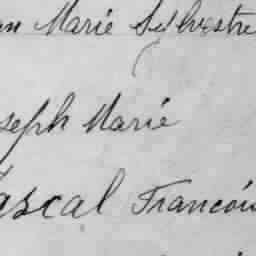 an Marie Sylvestre
seph Marie
ascal Francoi